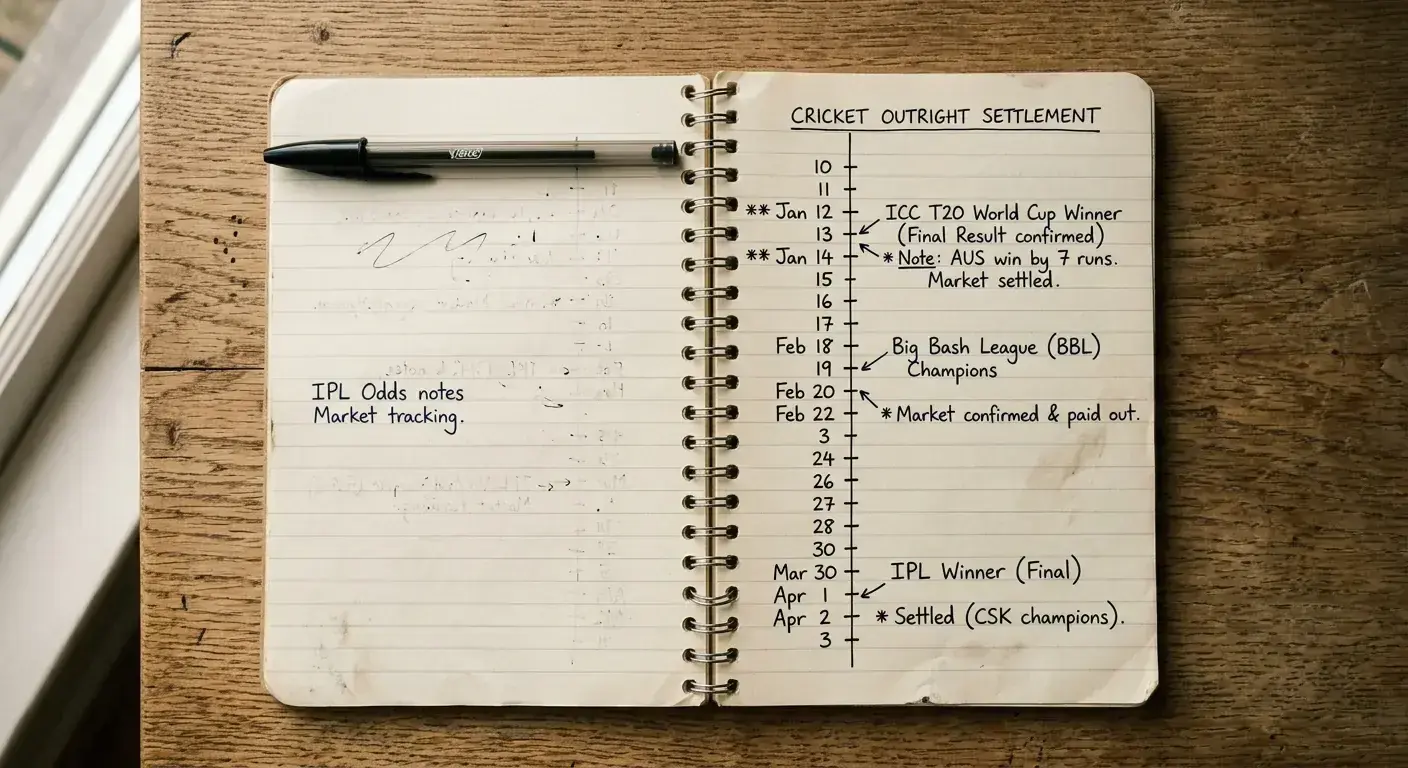 IPL Odds notes
Market tracking.
CRICKET OUTRIGHT SETTLEMENT
10
11
** Jan 12 ICC T20 World Cup Winner
13 (Final Result confirmed)
** Jan 14 * Note: AUS win by 7 runs.
15 Market settled.
16
17
Feb 18 Big Bash League (BBL)
19 Champions
Feb 20
Feb 22 * Market confirmed & paid out.
3
24
26
27
28
30
Mar 30 IPL Winner (Final)
Apr 1
Apr 2 * Settled (CSK champions).
3